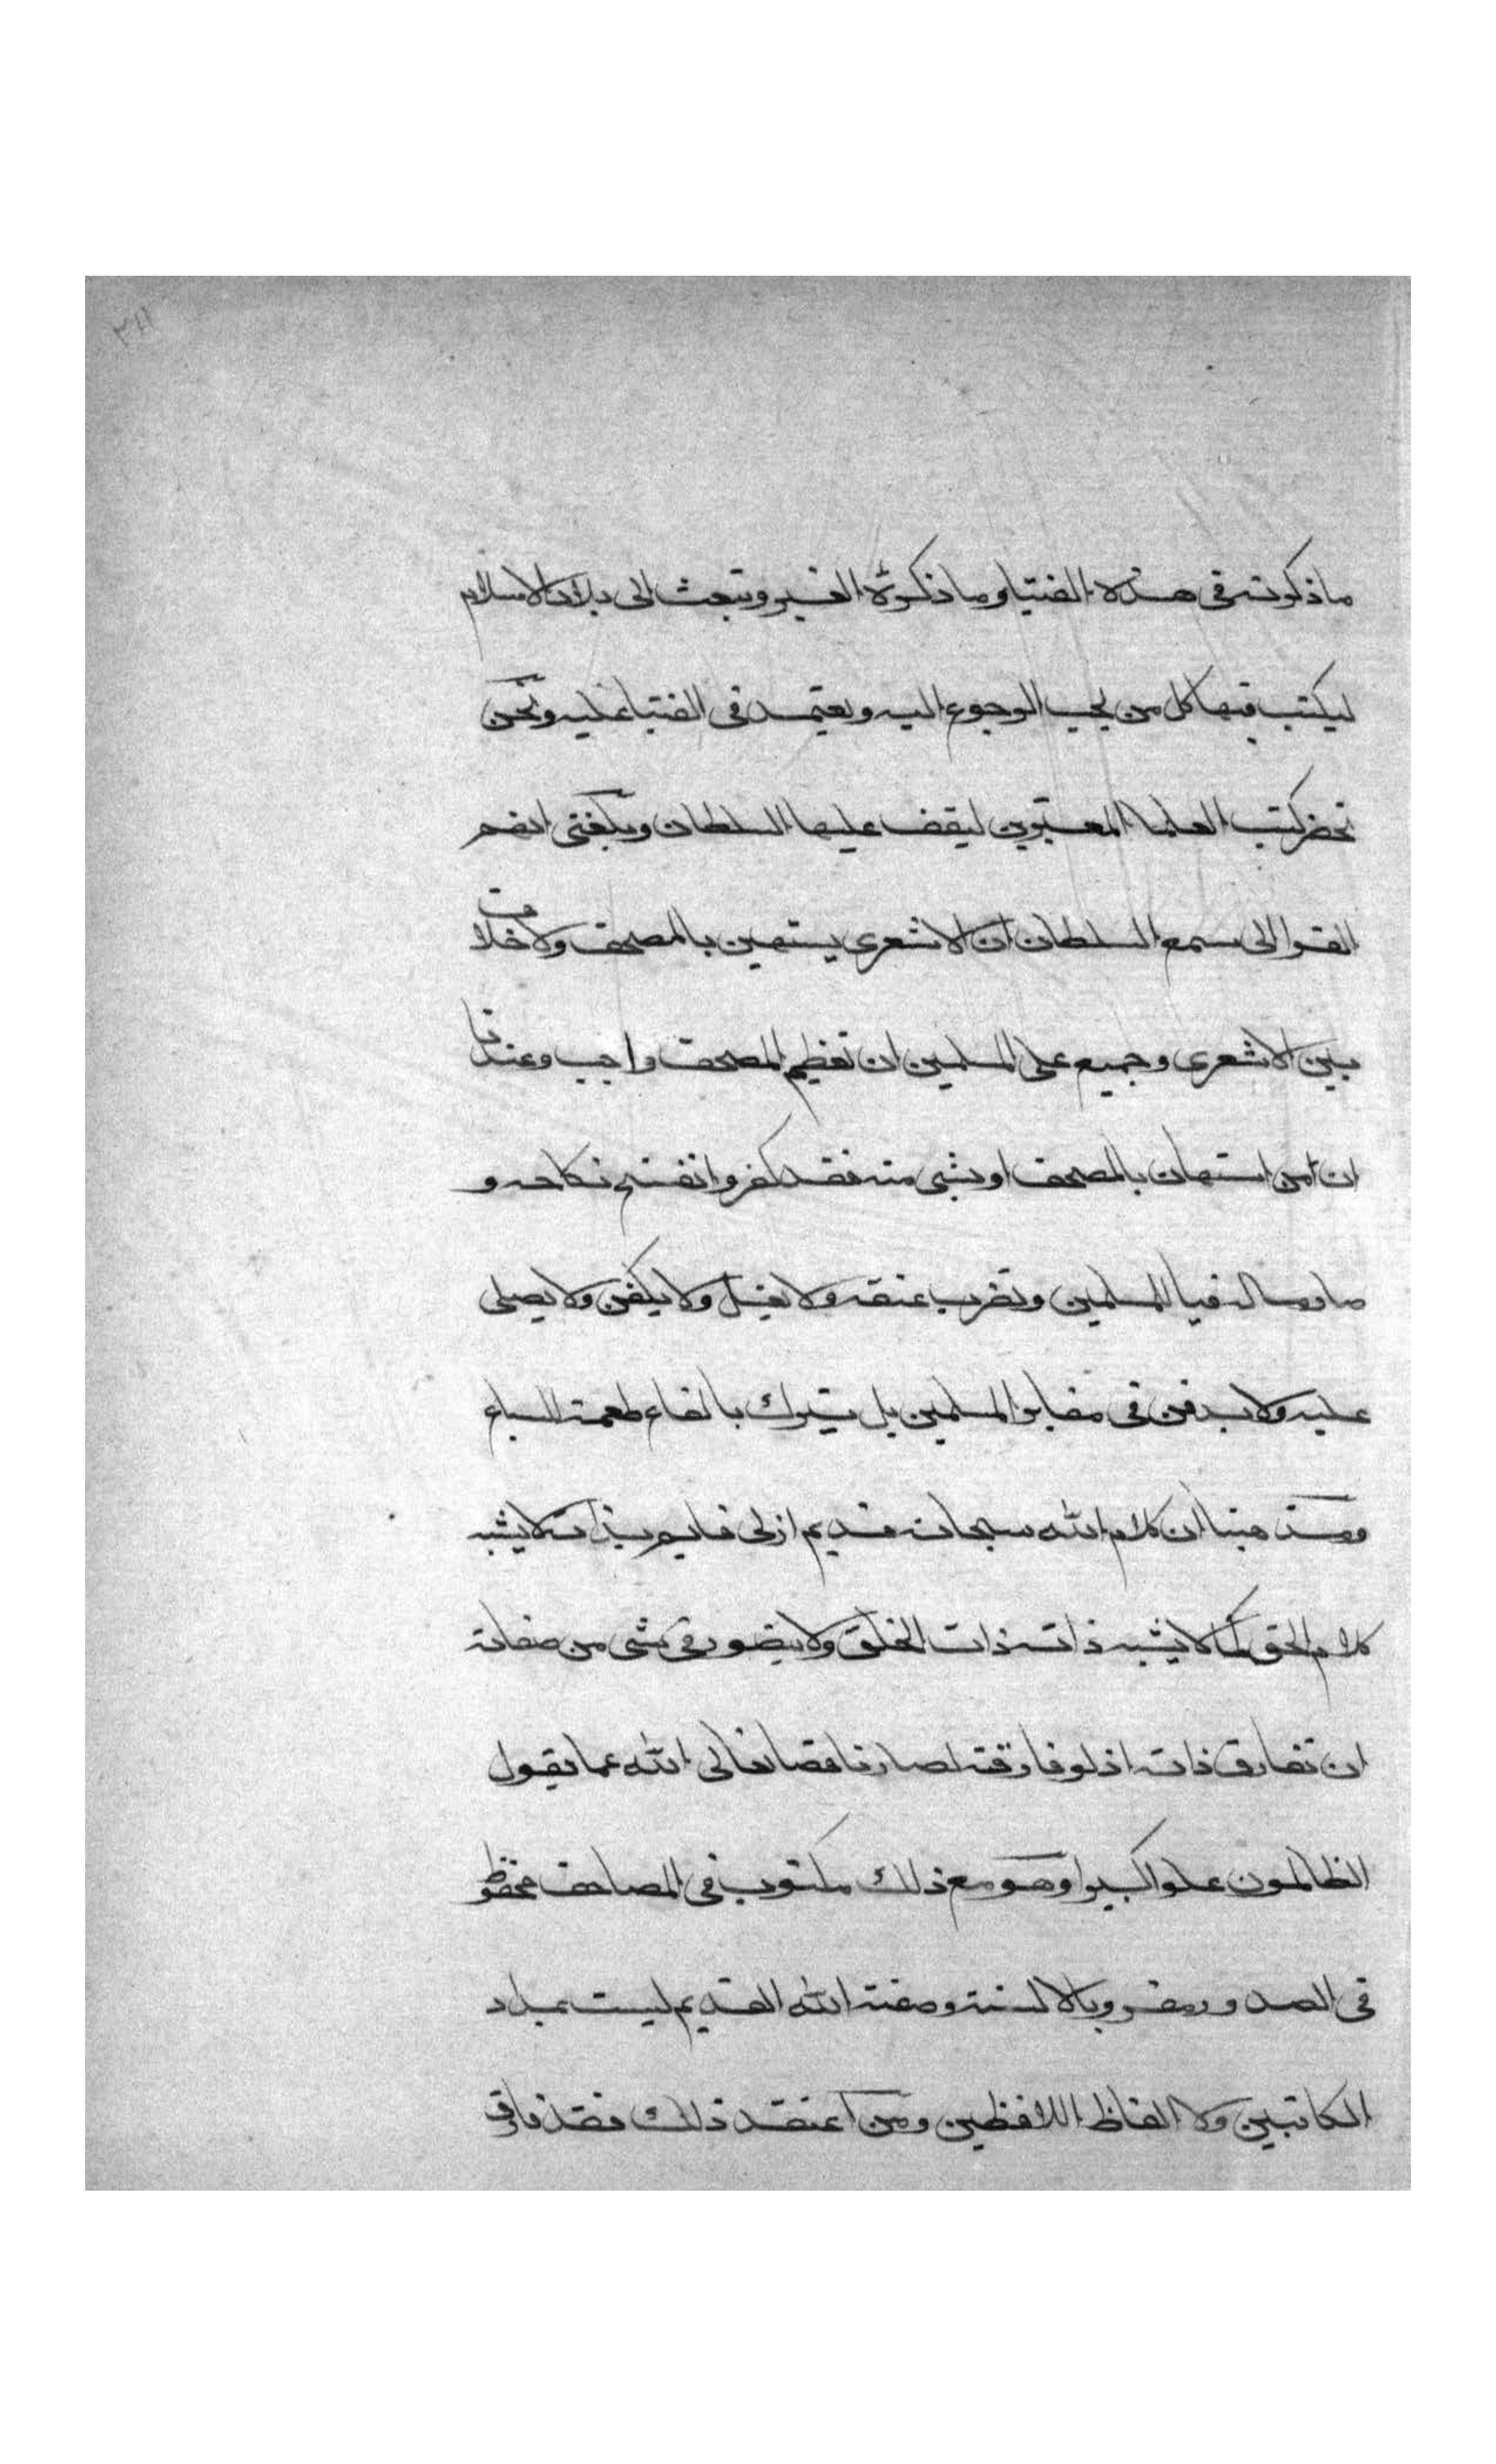 ماذكرته فى هذه الفتيا وما ذكرته الغير وتبعث الى بلاد الاسلام
ليكتب فيها كل من يجب الرجوع اليه ويعتمد فى الفتيا عليه ونحن
نحضر كتب العلما المعتبرين ليقف عليها السلطان وبلغنى انهم
القوا الى سمع السلطان ان الاشعرى يستهين بالمصحف ولا خلاف
بين الاشعرى وجميع على المسلمين ان تعظيم المصحف واجب وعندنا
ان من استهان بالمصحف او بشى منه فقد كفر وانفسخ نكاحه و
صار ماله فيا للمسلمين وتضرب عنقه ولا يغسل ولا يكفن ولا يصلى
عليه ولا يدفن فى مقابر المسلمين بل يترك بالقاع طعمة للسباع
ومذهبنا ان كلام الله سبحانه قديم ازلى قايم بذاته لا يشبه
كلام الحق كما لا يشبه ذاته ذات الخلق ولا يتصور فى شى من صفاته
ان تفارق ذاته اذ لو فارقته لصار ناقصا تعالى الله عما يقول
الظالمون علوا كبيرا وهو مع ذلك مكتوب فى المصاحف محفوظ
فى الصدور مقروبالالسنة وصفة الله القديم ليست بمداد
الكاتبين ولا الفاظ اللافظين ومن اعتقد ذلك فقد فارق
٣٨